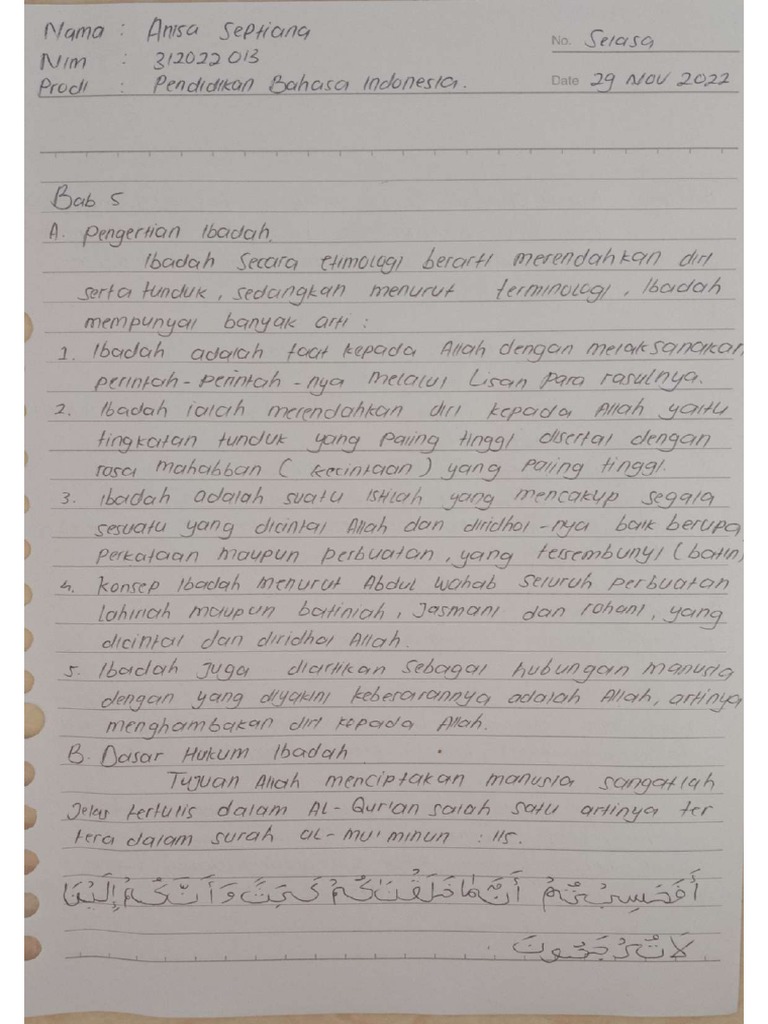 Nama : Anisa Septiana
Nim : 312022013
Prodi : Pendidikan Bahasa Indonesia.
No. Selasa
Date 29 Nov 2022
Bab 5
A. Pengertian Ibadah.
Ibadah Secara etimologi berarti merendahkan diri
serta tunduk, sedangkan menurut terminologi, Ibadah
mempunyai banyak arti :
1. Ibadah adalah taat kepada Allah dengan melaksanakan
perintah-perintah-nya melalui Lisan para rasulnya.
2. Ibadah ialah merendahkan diri kepada Allah yaitu
tingkatan tunduk yang paling tinggi disertai dengan
rasa mahabban (kecintaan) yang paling tinggi.
3. Ibadah adalah suatu istilah yang mencakup segala
sesuatu yang dicintai Allah dan diridhoi-nya baik berupa
perkataan maupun perbuatan, yang tersembunyi (batin)
4. Konsep Ibadah menurut Abdul Wahab seluruh perbuatan
lahiriah maupun batiniah, Jasmani dan rohani, yang
dicintai dan diridhoi Allah.
5. Ibadah Juga diartikan sebagai hubungan manusia
dengan yang diyakini kebesarannya adalah Allah, artinya
menghambakan diri kepada Allah.
B. Dasar Hukum Ibadah
Tujuan Allah menciptakan manusia sangatlah
Jelas tertulis dalam Al-Qur'an salah satu artinya ter
tera dalam surah al-mu'minun : 115.
أَفَحَسِبْتُمْ أَنَّمَا خَلَقْنَاكُمْ عَبَثًا وَأَنَّكُمْ إِلَيْنَا
لَا تُرْجَعُونَ